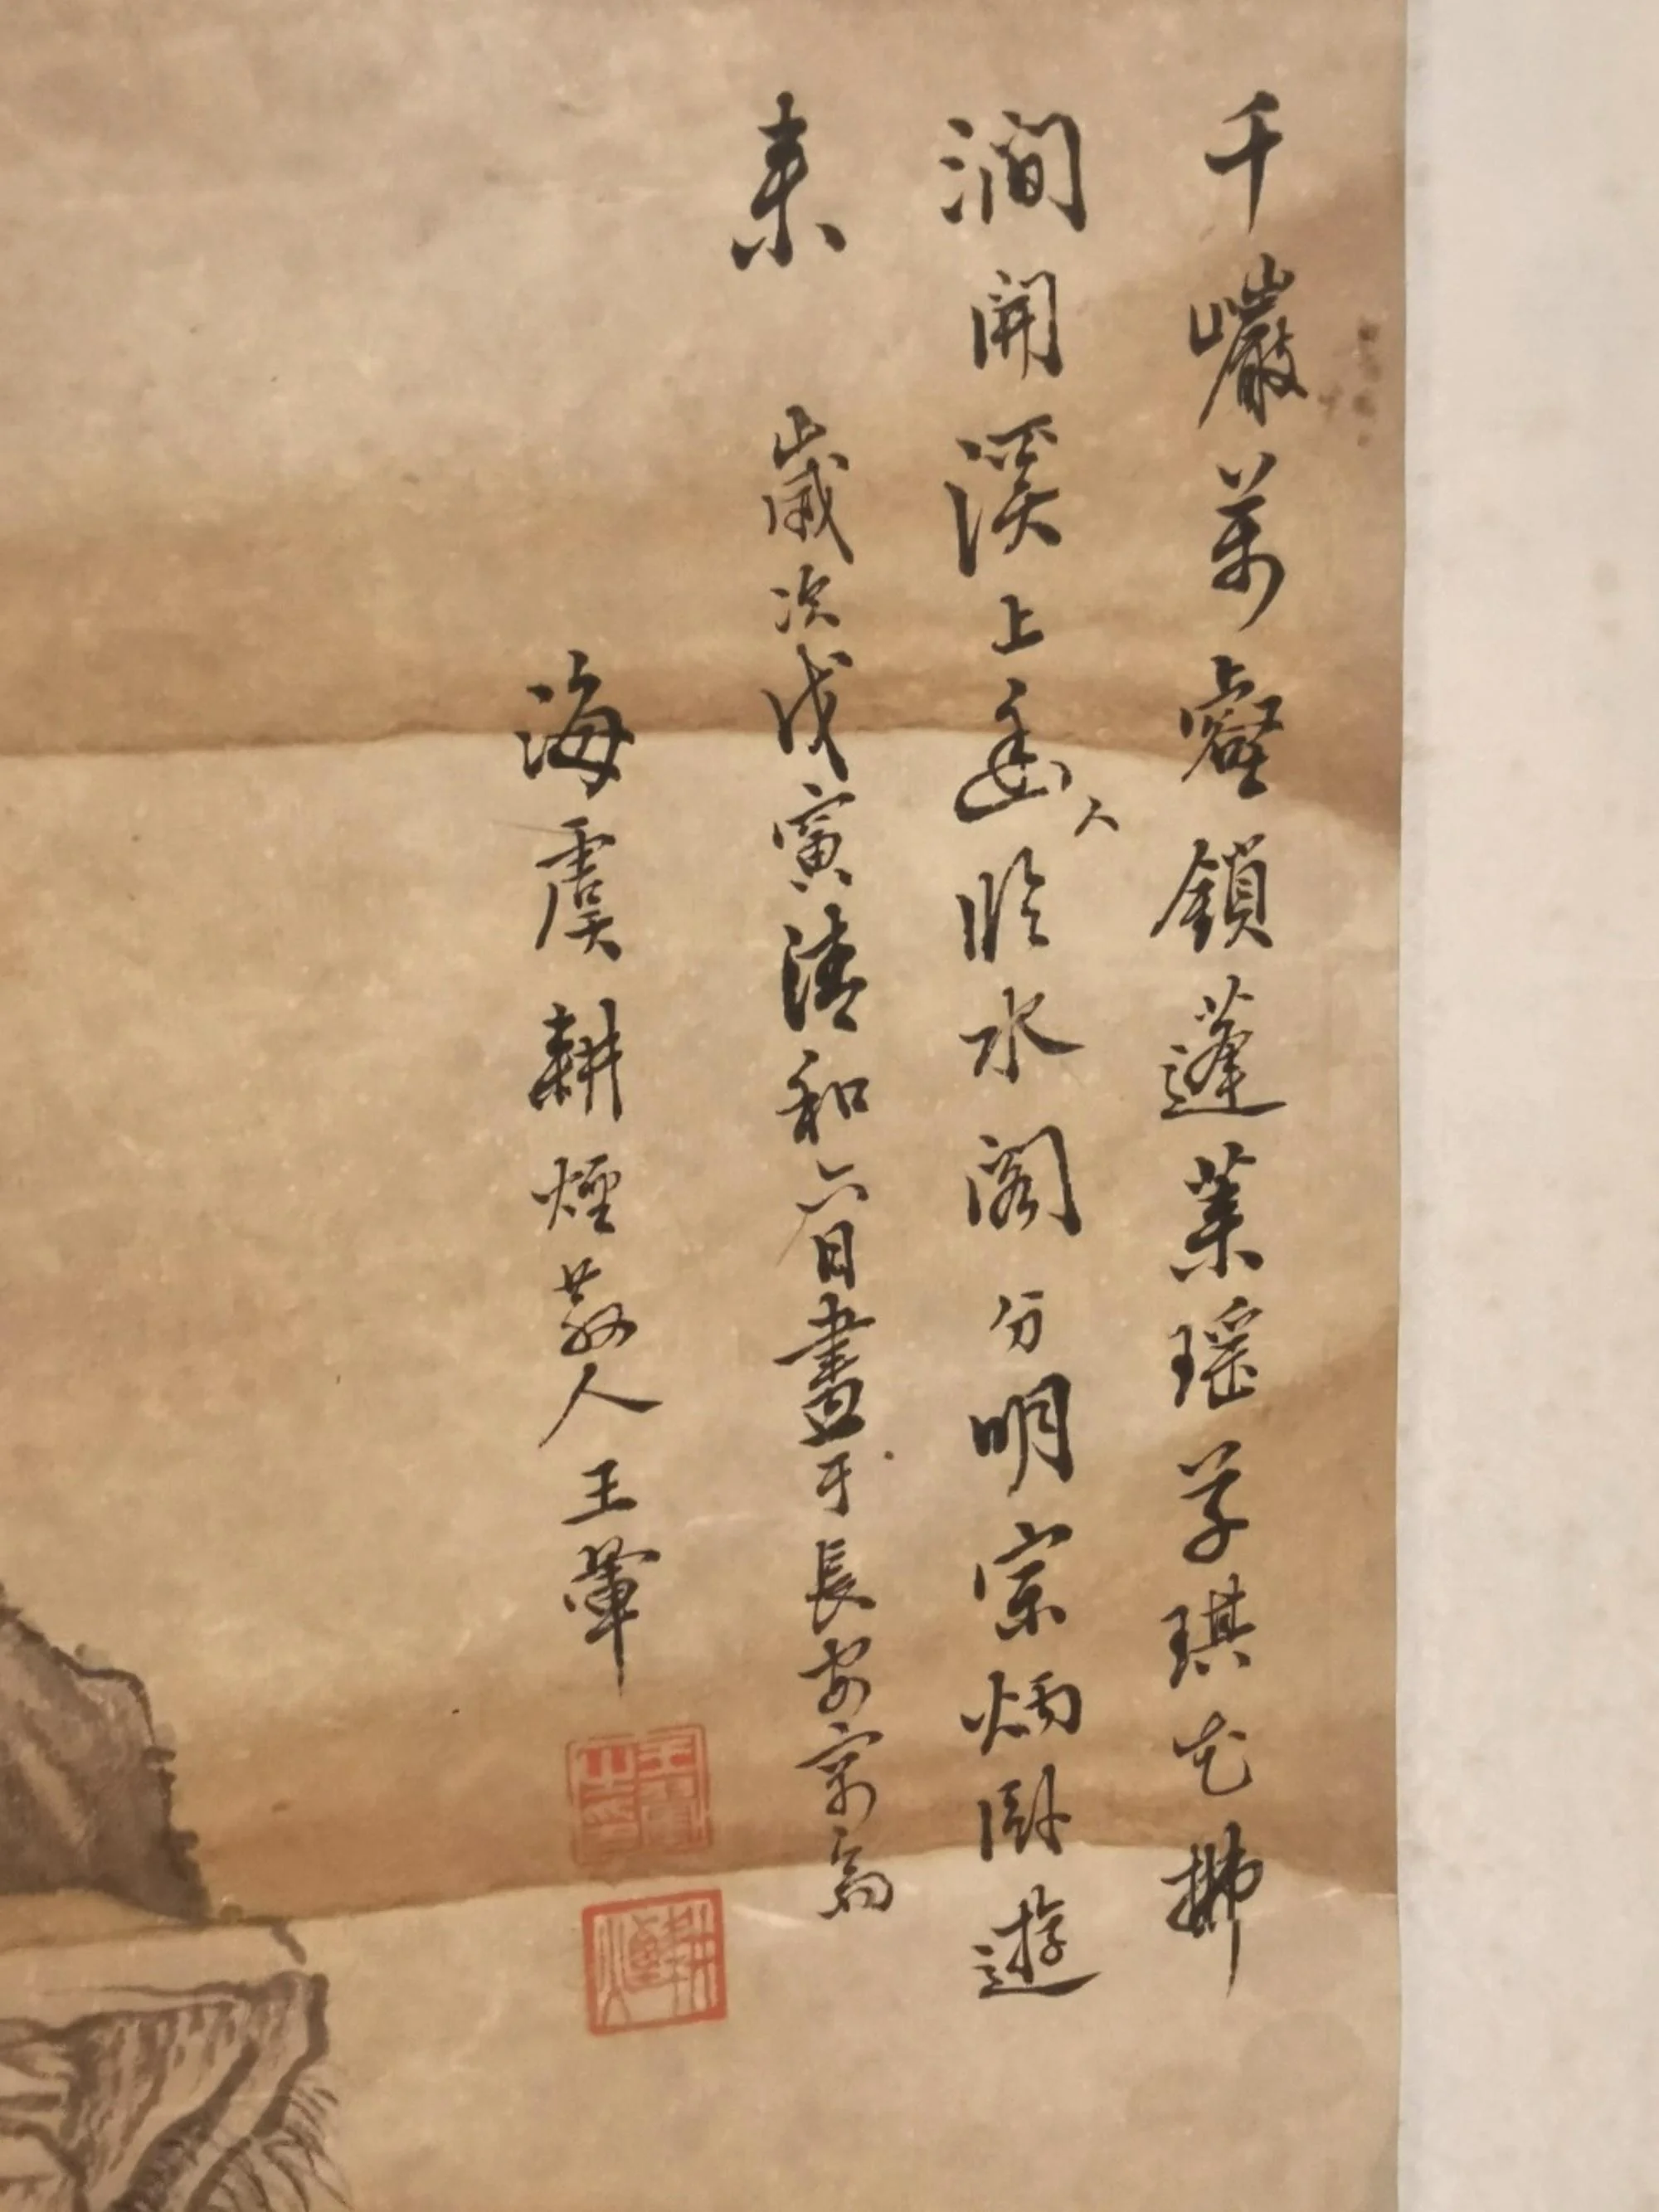 千巖萬壑鎖蓬萊瑤草琪花拂
澗開溪上幽人臨水閣分明宗炳臥遊
來
歲次戊寅清和六日畫于長安寓
海虞耕煙散人王翬
王翬之印
耕煙